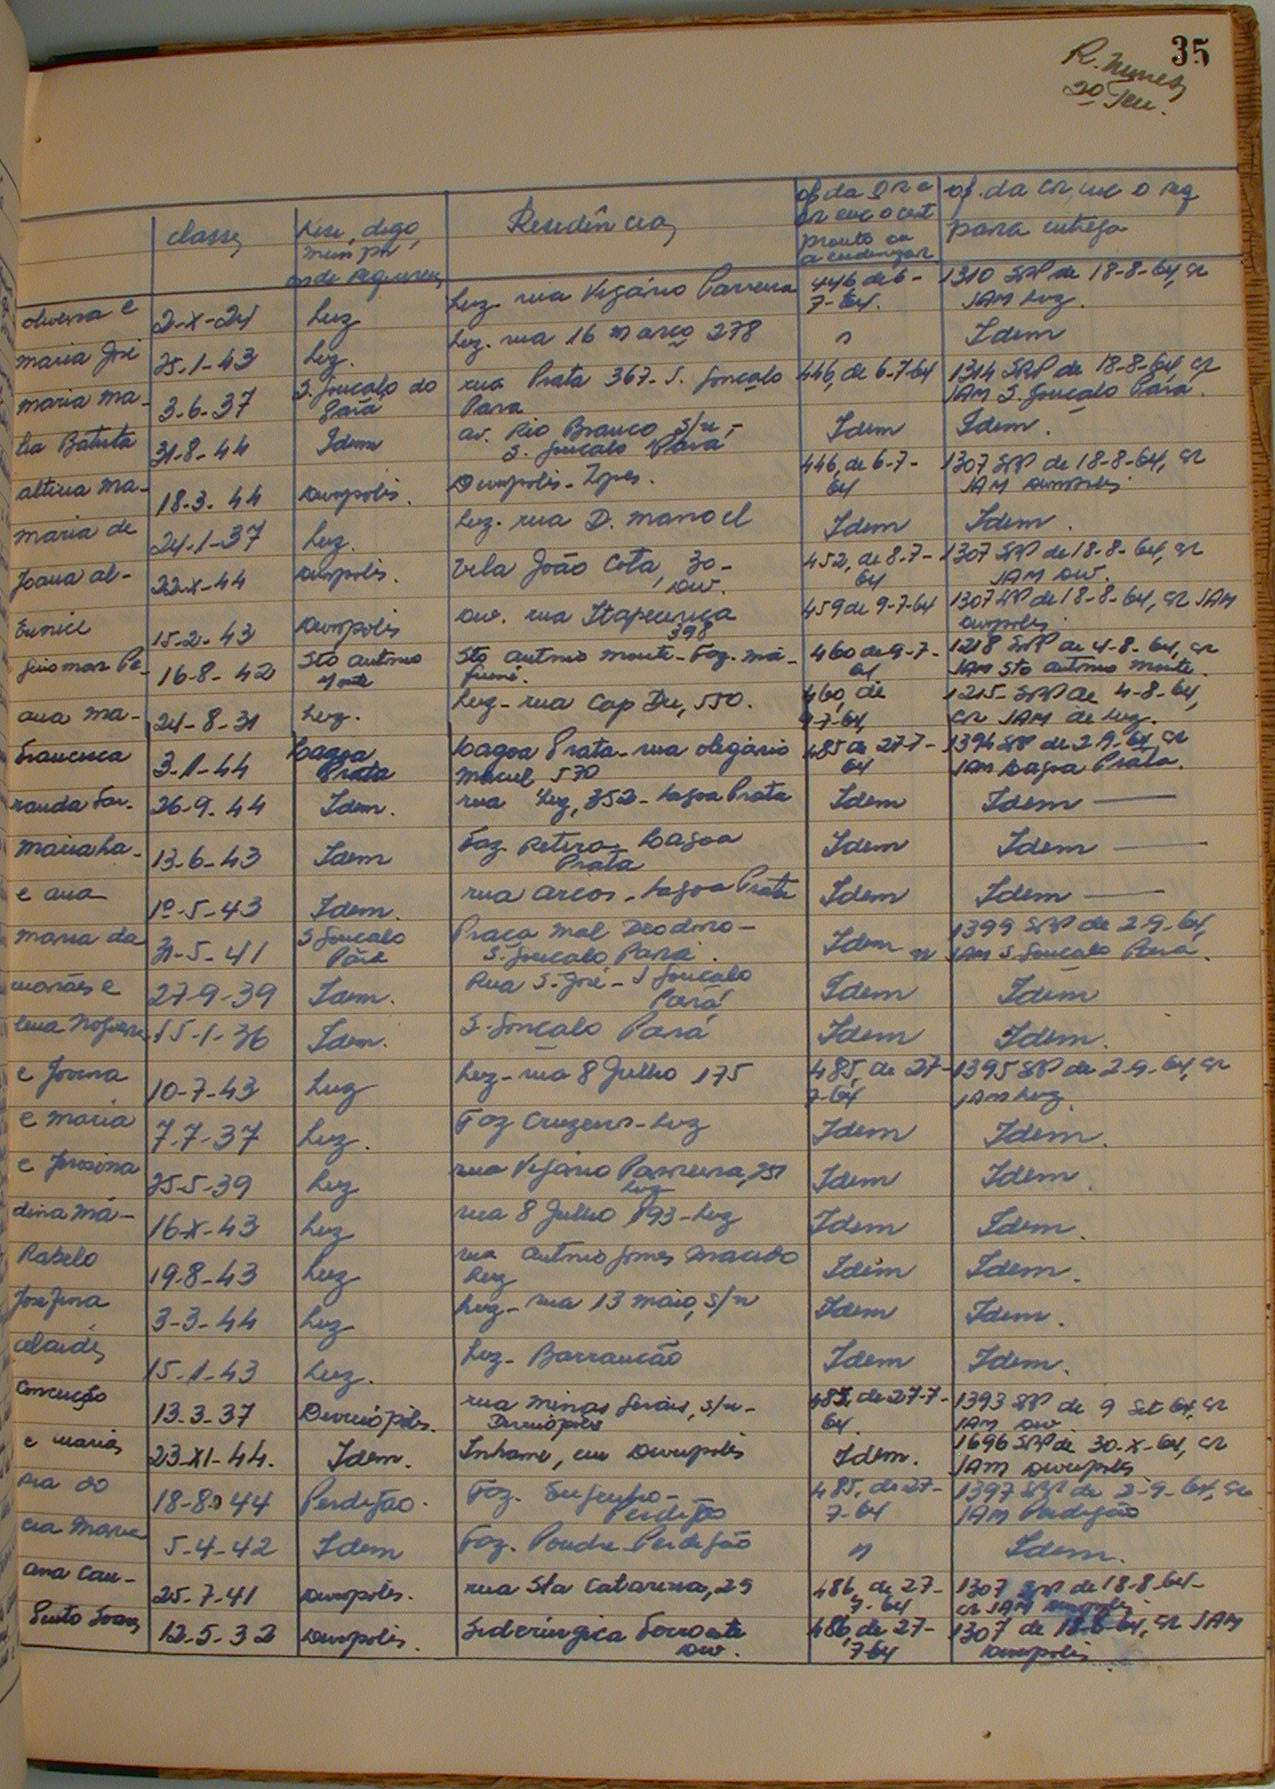 35
R. Nunes
2º Ten.
classe
Resi, digo,
mun por
onde requereu
Residência
of. da
pronto ou
of. da cr, enc o req
para entrega
oliveira e 2-X-24 Luz Luz. rua Vigário Parreira 446 de 6-7-64. 1310 SRP de 18-8-64, cr JAM Luz.
maria José 25-1-43 Luz. Luz. rua 16 março 278 n Idem
maria ma- 3-6-37 S. Gonçalo do Pará rua Prata 367-S. Gonçalo Para 446, de 6-7-64 1314 SRP de 18-8-64, cr JAM S. Gonçalo Pará.
lia Batista 31-8-44 Idem av. Rio Branco s/n - S. Gonçalo Pará Idem Idem.
altina ma- 18-3-44 Divinópolis. Divinópolis- 446, de 6-7-64 1307 SRP de 18-8-64, cr JAM Divinópolis.
maria de 24-1-37 Luz. Luz. rua D. manoel Idem Idem.
Joana al- 22-X-44 Divinópolis. Vila João Cota, 30- Div. 452, de 8-7-64 1307 SRP de 18-8-64, cr JAM Div.
Eunice 15-2-43 Divinópolis Div. rua Itapecerica 398 459 de 9-7-64 1307 SRP de 18-8-64, cr JAM Divinópolis.
Guiomar Pe- 16-8-42 Sto antonio Monte Sto antonio monte- Faz. 460 de 9-7-64 1218 SRP de 4-8-64, cr JAM Sto antonio monte.
ana ma- 24-8-31 Luz. Luz- rua Cap Du, 550. 460, de 9-7-64, 1215- SRP de 4-8-64, cr JAM de Luz.
Francisca 3-1-44 Lagoa Prata Lagoa Prata- rua olegário maciel 570 485 de 27-7-64 1394 SRP de 2-9-64, cr JAM Lagoa Prata.
26-9-44 Idem. rua Luz, 352- Lagoa Prata Idem Idem
maria La- 13-6-43 Idem Faz Retiro- Lagoa Prata Idem Idem
e ana 1º-5-43 Idem. rua arcos- Lagoa Prata Idem Idem
maria da 31-5-41 S Gonçalo Pará Praça mal Deodoro- S. Gonçalo Pará. Idem 1399 SRP de 2-9-64, cr JAM S. Gonçalo Pará.
27-9-39 Idem. Rua S. José- S Gonçalo Pará Idem Idem
lena Nogueira 15-1-36 Idem. S. Gonçalo Pará Idem Idem.
e Jovina 10-7-43 Luz Luz- rua 8 Julho 175 485, de 27-7-64 1395 SRP de 2-9-64, cr JAM Luz.
e maria 7-7-37 Luz. Faz Cruzeiro-Luz Idem Idem.
e Jerosina 25-5-39 Luz rua Vigário Parreira, 251 Luz Idem Idem.
dina Ma- 16-X-43 Luz rua 8 Julho 193-Luz Idem Idem.
Rabelo 19-8-43 Luz rua antonio Gomes macedo Luz Idem Idem.
Josefina 3-3-44 Luz- Luz- rua 13 maio, s/n Idem Idem.
15-1-43 Luz. Luz- Barrancão Idem Idem.
Conceição 13-3-37 Divinópolis. rua minas Gerais, s/n- Divinópolis 485, de 27-7-64. 1393 SRP de 9 set 64, cr JAM Div
e maria 23-XI-44. Idem. Inhame, em Divinópolis Idem. 1696 SRP de 30-X-64, cr JAM Divinópolis
ria do 18-8-44 Perdigão. Faz. Engenho- Perdigão 485, de 27-7-64 1397 SRP de 2-9-64, cr JAM Perdigão
cia Maria 5-4-42 Idem Faz. Perdigão n Idem.
ana Cau- 25-7-41 Divinópolis. rua Sta Catarina, 29 486, de 27-7-64 1307 SRP de 18-8-64- cr JAM Divinópolis
Bento Soares 12-5-32 Divinópolis. Siderúrgica Ferroeste Div. 486, de 27-7-64 1307 de 18-8-64, cr JAM Divinópolis